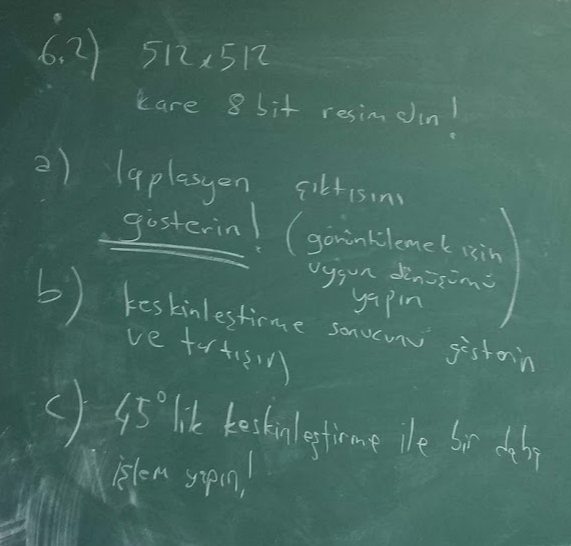 6.2) 512x512
kare 8 bit resim alın!
a) laplasyen çıktısını
gösterin! (görüntülemek için
uygun dönüşümü
yapın)
b) keskinleştirme sonucunu gösterin
ve tartışın
c) 45° lik keskinleştirme ile bir daha
işlem yapın!